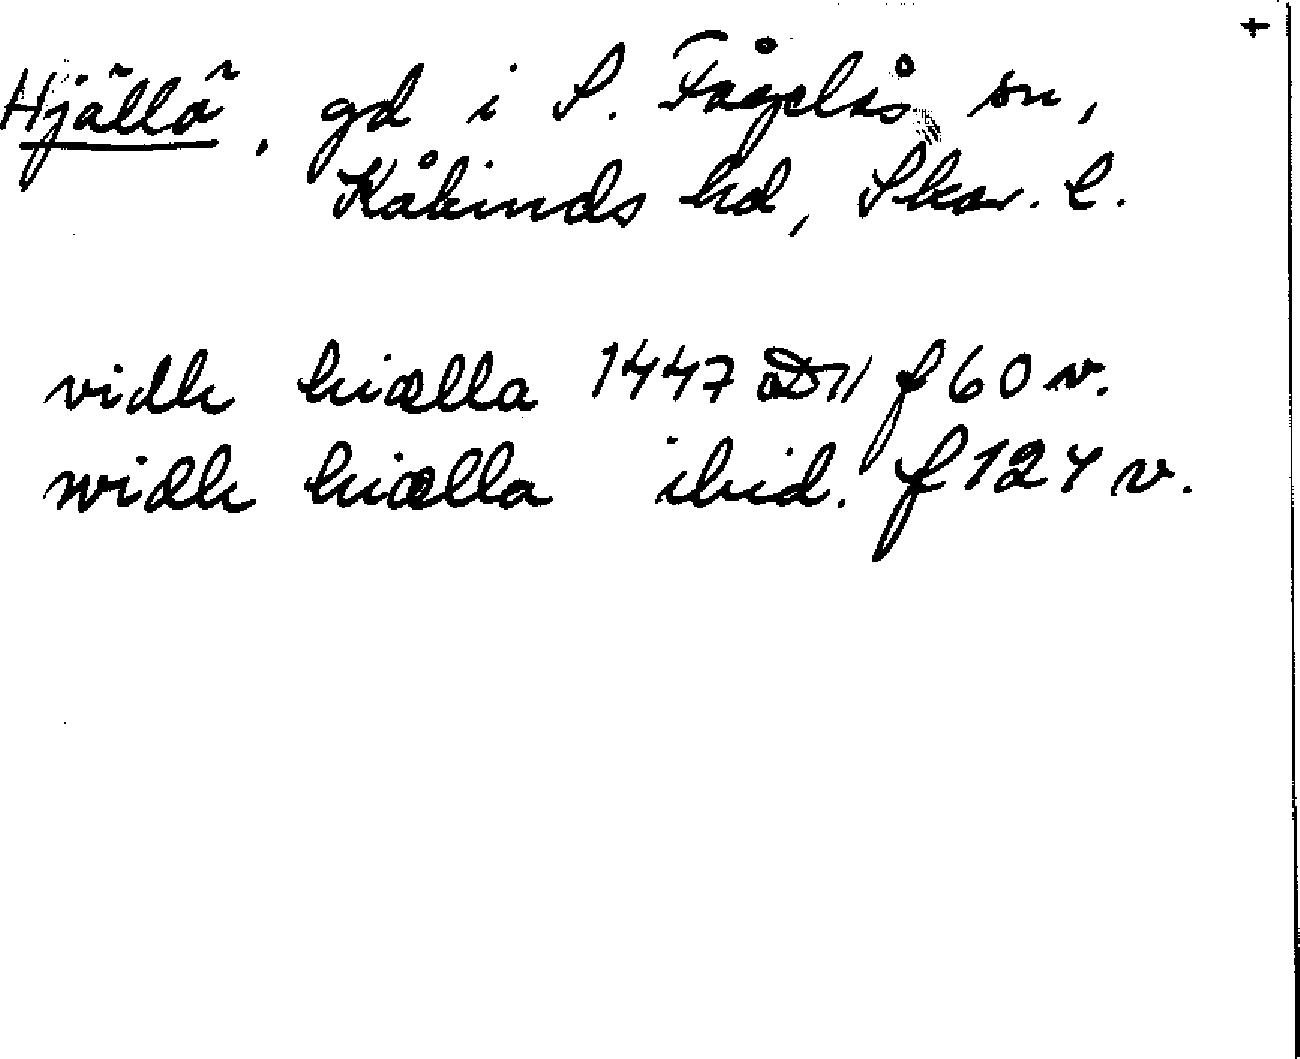 +
Hjällö, gd i S. Fågelås sn,
Kåkinds hd, Skar. l.
vidh hiælla 1447 f 60 v.
widh hiælla ibid. f 124 v.